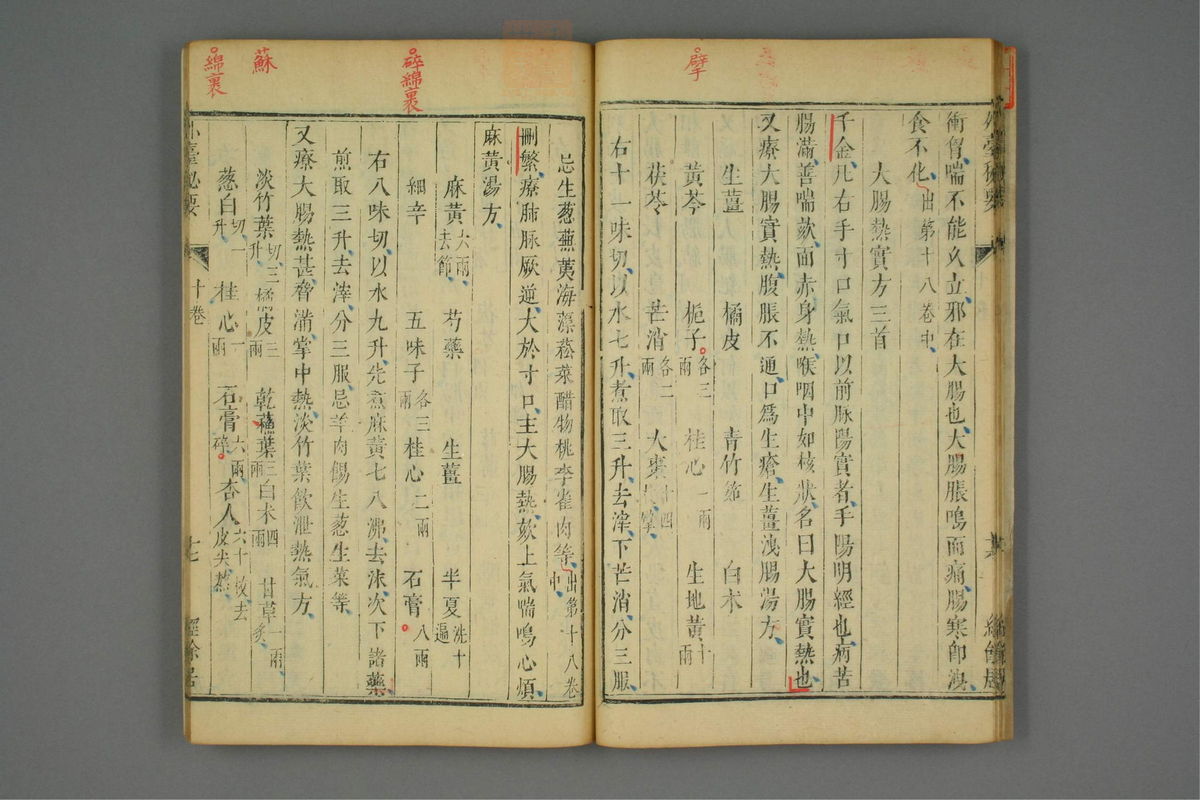 擘
衝胷喘不能久立邪在大腸也大腸脹鳴而痛腸寒卽洩
食不化出第十八卷中
大腸熱實方三首
千金凡右手寸口氣口以前脉陽實者手陽明經也病苦
腸滿善喘欬面赤身熱喉咽中如核狀名曰大腸實熱也
又療大腸實熱腹脹不通口爲生瘡生薑洩腸湯方
生薑 橘皮 青竹筎 白术
黃芩 梔子各三兩 桂心一兩 生地黃十兩
茯苓 芒消各二兩 大棗十四
右十一味切以水七升煮取三升去滓下芒消分三服
碎綿裹
蘇
綿裹
忌生葱蕪荑海藻菘菜醋物桃李雀肉等出第十八卷中
刪繁療肺脉厥逆大於寸口主大腸熱欬上氣喘鳴心煩
麻黃湯方
麻黃六兩去節 芍藥 生薑 半夏洗十遍
細辛 五味子各三兩 桂心二兩 石膏八兩
右八味切以水九升先煮麻黃七八沸去沫次下諸藥
煎取三升去滓分三服忌羊肉餳生葱生菜等
又療大腸熱甚脅滿掌中熱淡竹葉飲泄熱氣方
淡竹葉切三升 橘皮三兩 乾葉三兩 白术四兩 甘草一兩炙
葱白切一升 桂心一兩 石膏六兩碎 杏人六十枚去皮尖
外臺秘要 十卷 十七 經餘居